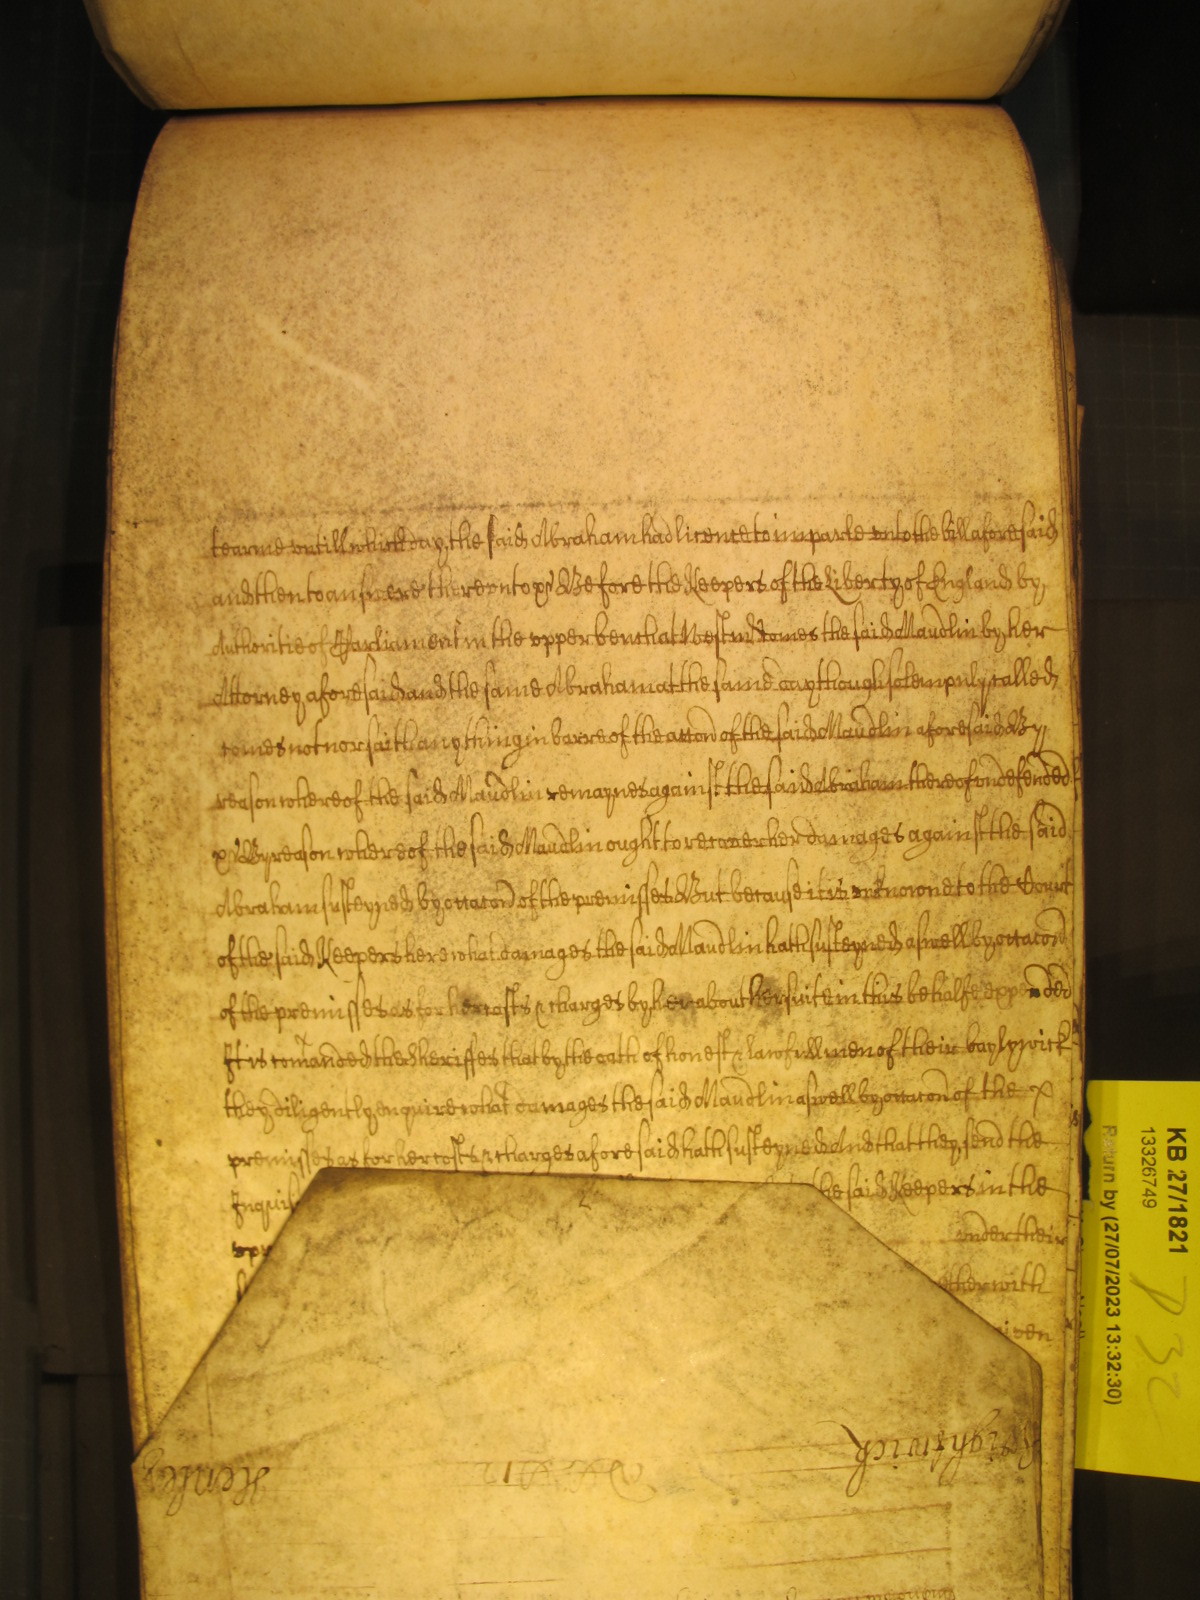 tearme untill which day the said Abraham had licence to imparle unto the bill aforesaid
and then to answere thereunto &c Before the Keepers of the Liberty of England by
Authoritie of Parliament in the upper bench at Westm̄ comes the said Maudlin by her
Attorney aforesaid and the same Abraham at the same day though solempnly called
comes not nor saith any thing in barre of the accōn of the said Maudlin aforesaid By
reason whereof the said Maudlin remaynes against the said Abraham thereof undefended
&c By reason whereof the said Maudlin ought to recover her damages against the said
Abraham susteyned by occacōn of the premisses But because it is unknowne to the Court
of the said Keepers here what damages the said Maudlin hath susteyned aswell by occacōn
of the premisses as for her costs & charges by her about her suite in this behalfe expended
It is comanded the Sheriffes that by the oath of honest & lawfull men of their baylywick
they diligently enquire what damages the said Maudlin aswell by occacōn of the
premisses as for her costs & charges aforesaid hath susteyned And that they send the
the said Keepers in the
under their
with
Highwick
Henley
KB 27/1821
13326749
Return by (27/07/2023 13:32:30)